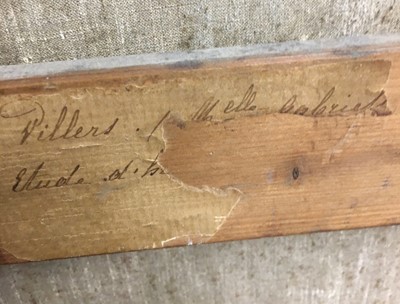 Villers Melle Gabrielle
Etude d'